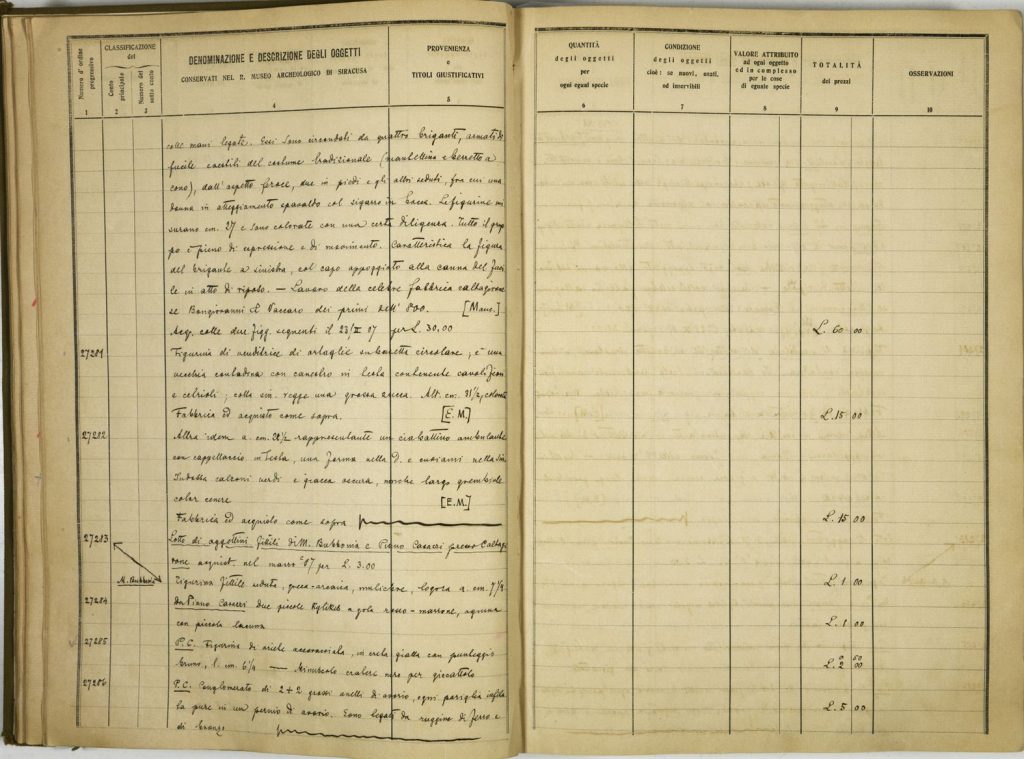 Numero d'ordine progressivo
CLASSIFICAZIONE
del
Conto principale
Numero del sotto conto
DENOMINAZIONE E DESCRIZIONE DEGLI OGGETTI
CONSERVATI NEL R. MUSEO ARCHEOLOGICO DI SIRACUSA
PROVENIENZA
e
TITOLI GIUSTIFICATIVI
1 2 3 4 5
colle mani legate. Essi sono circondati da quattro briganti, armati di
fucile e vestiti del costume tradizionale (mantellino e berretto a
cono), dall'aspetto feroce, due in piedi e gli altri seduti, fra cui una
donna in atteggiamento spavaldo col sigarro in bocca. Le figurine mi
surano cm. 27 e sono colorate con una certa diligenza. Tutto il grup
po è pieno di espressione e di movimento. Caratteristica la figura
del brigante a sinistra, col capo appoggiato alla canna del fuci
le in atto di riposo. — Lavoro della celebre fabbrica caltagirone
se Bongiovanni e Vaccaro dei primi dell' 800. [Manc.]
Acq. colle due figg. seguenti il 23/II 07 per L. 30,00
27281
Figurina di venditrice di ortaglie su basetta circolare; è una
vecchia contadina con canestro in testa contenente cavoli fiori
e cetrioli; colla sin. regge una grossa zucca. Alt. cm. 21 1/2, colorata
Fabbrica ed acquisto come sopra. [E.M.]
27282
Altra idem a. cm. 22 1/2 rappresentante un ciabattino ambulante
con cappellaccio in testa, una forma nella D. e cuoiami nella sin.
Indossa calzoni verdi e giacca oscura, nonché largo grembiale
color cenere [E.M.]
Fabbrica ed acquisto come sopra
27283
Lotto di oggettini fittili di M. Bubbonia e Piano Casseri presso Caltagi
rone acquist. nel marzo 07 per L. 3.00
M. Bubbonia
Figurina fittile seduta, greco-arcaica, muliebre, logora a. cm. 7 1/2
27284
Da Piano Casseri due piccole Kylikes a gola rosso-marrone, ognuna
con piccola lacuna
27285
P.C. Figurina di ariete accovacciata, in creta gialla con punteggio
bruno, l. cm. 6 1/2 — Minuscolo cratere nero per giocattolo
27286
P.C. Conglomerato di 2+2 grossi anelli di avorio, ogni pariglia infila
ta pure in un pernio di avorio. Sono legati da ruggine di ferro e
di bronzo
QUANTITÀ
degli oggetti
per
ogni egual specie
CONDIZIONE
degli oggetti
cioè: se nuovi, usati,
od inservibili
VALORE ATTRIBUITO
ad ogni oggetto
ed in complesso
per le cose
di eguale specie
TOTALITÀ
dei prezzi
OSSERVAZIONI
6 7 8 9 10
L. 60 00
L. 15 00
L. 15 00
L. 1 00
L. 1 00
0 50
L. 2 00
L. 5 00